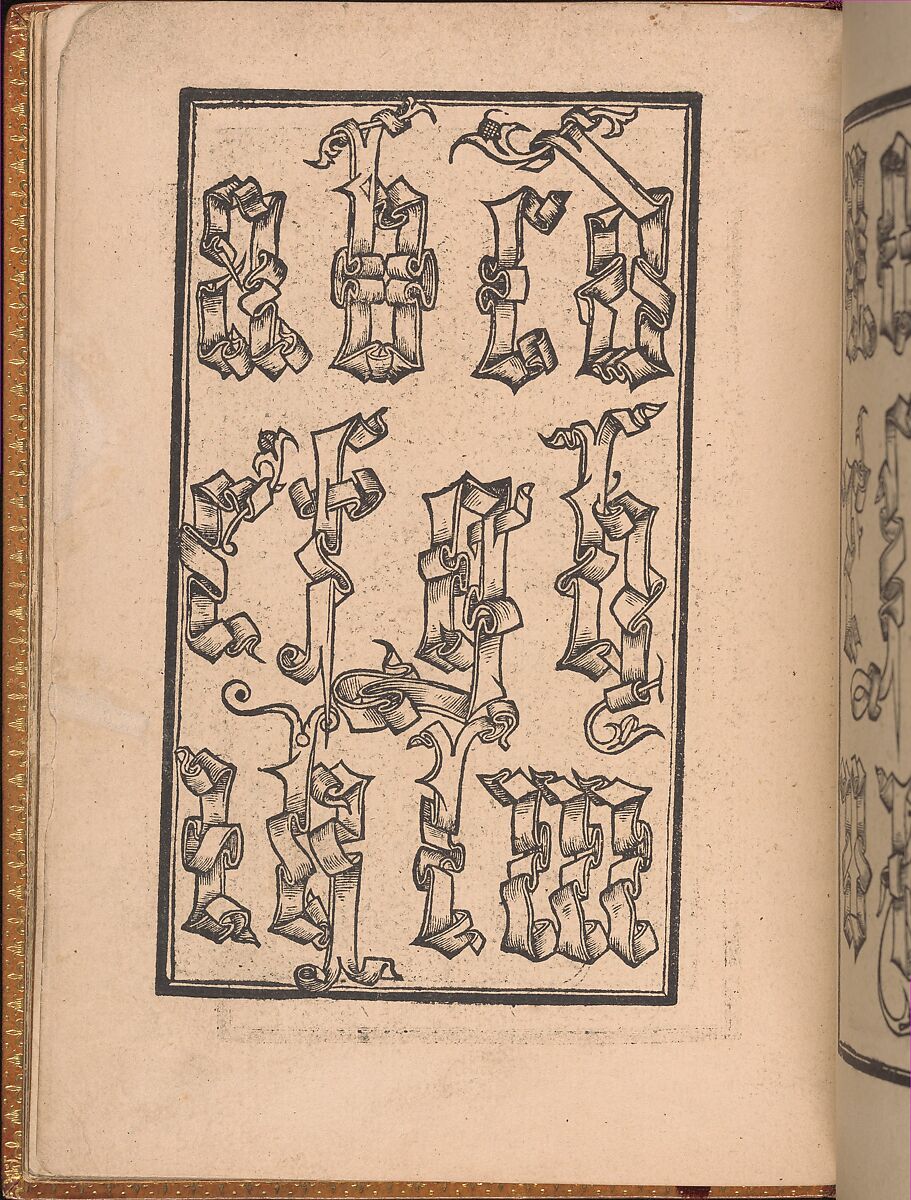 a b c d
e f g h
i k l m